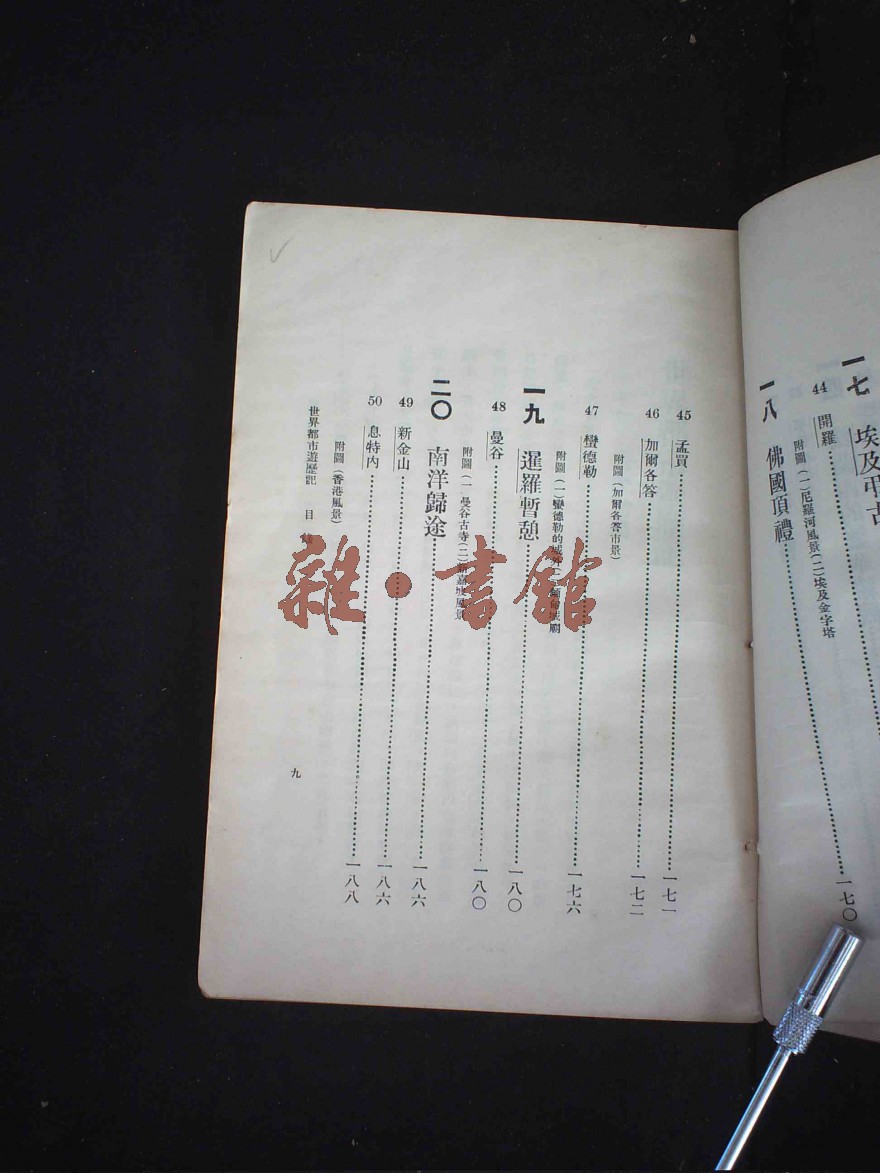 一七　埃及弔古
44 開羅……一七〇
附圖（一）尼羅河風景（二）埃及金字塔
一八　佛國頂禮
45 孟買……一七一
46 加爾各答……一七二
附圖（加爾各答市景）
47 蠻德勒……一七六
附圖（一）蠻德勒的城
一九　暹羅暫憩……一八〇
48 曼谷……一八〇
附圖（一 曼谷古寺（二）嘉坡風景
二〇　南洋歸途……一八六
49 新金山……一八六
50 息特內……一八八
附圖（香港風景）
世界都市遊歷記　目
九
雜·書館